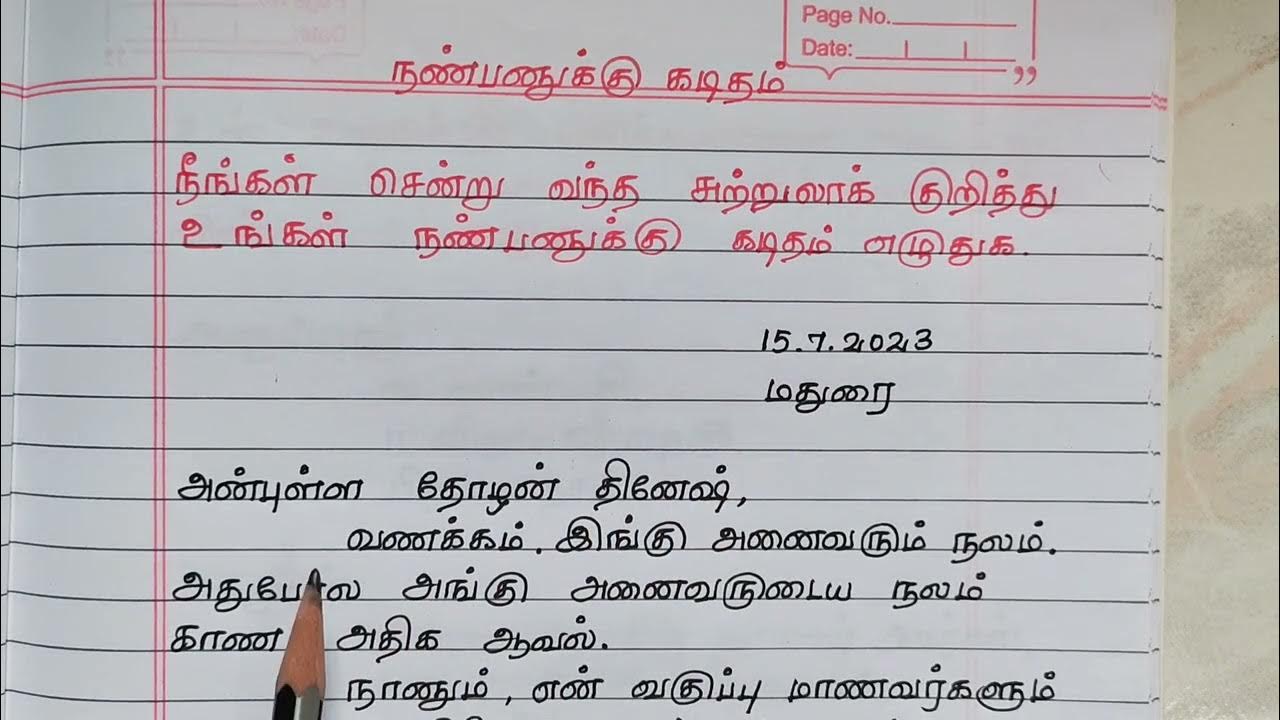 Page No.
Date:
நண்பனுக்கு கடிதம்
நீங்கள் சென்று வந்த சுற்றுலாக் குறித்து
உங்கள் நண்பனுக்கு கடிதம் எழுதுக.
15.7.2023
மதுரை
அன்புள்ள தோழன் தினேஷ்,
வணக்கம். இங்கு அனைவரும் நலம்.
அதுபோல அங்கு அனைவருடைய நலம்
காண அதிக ஆவல்.
நானும், என் வகுப்பு மாணவர்களும்